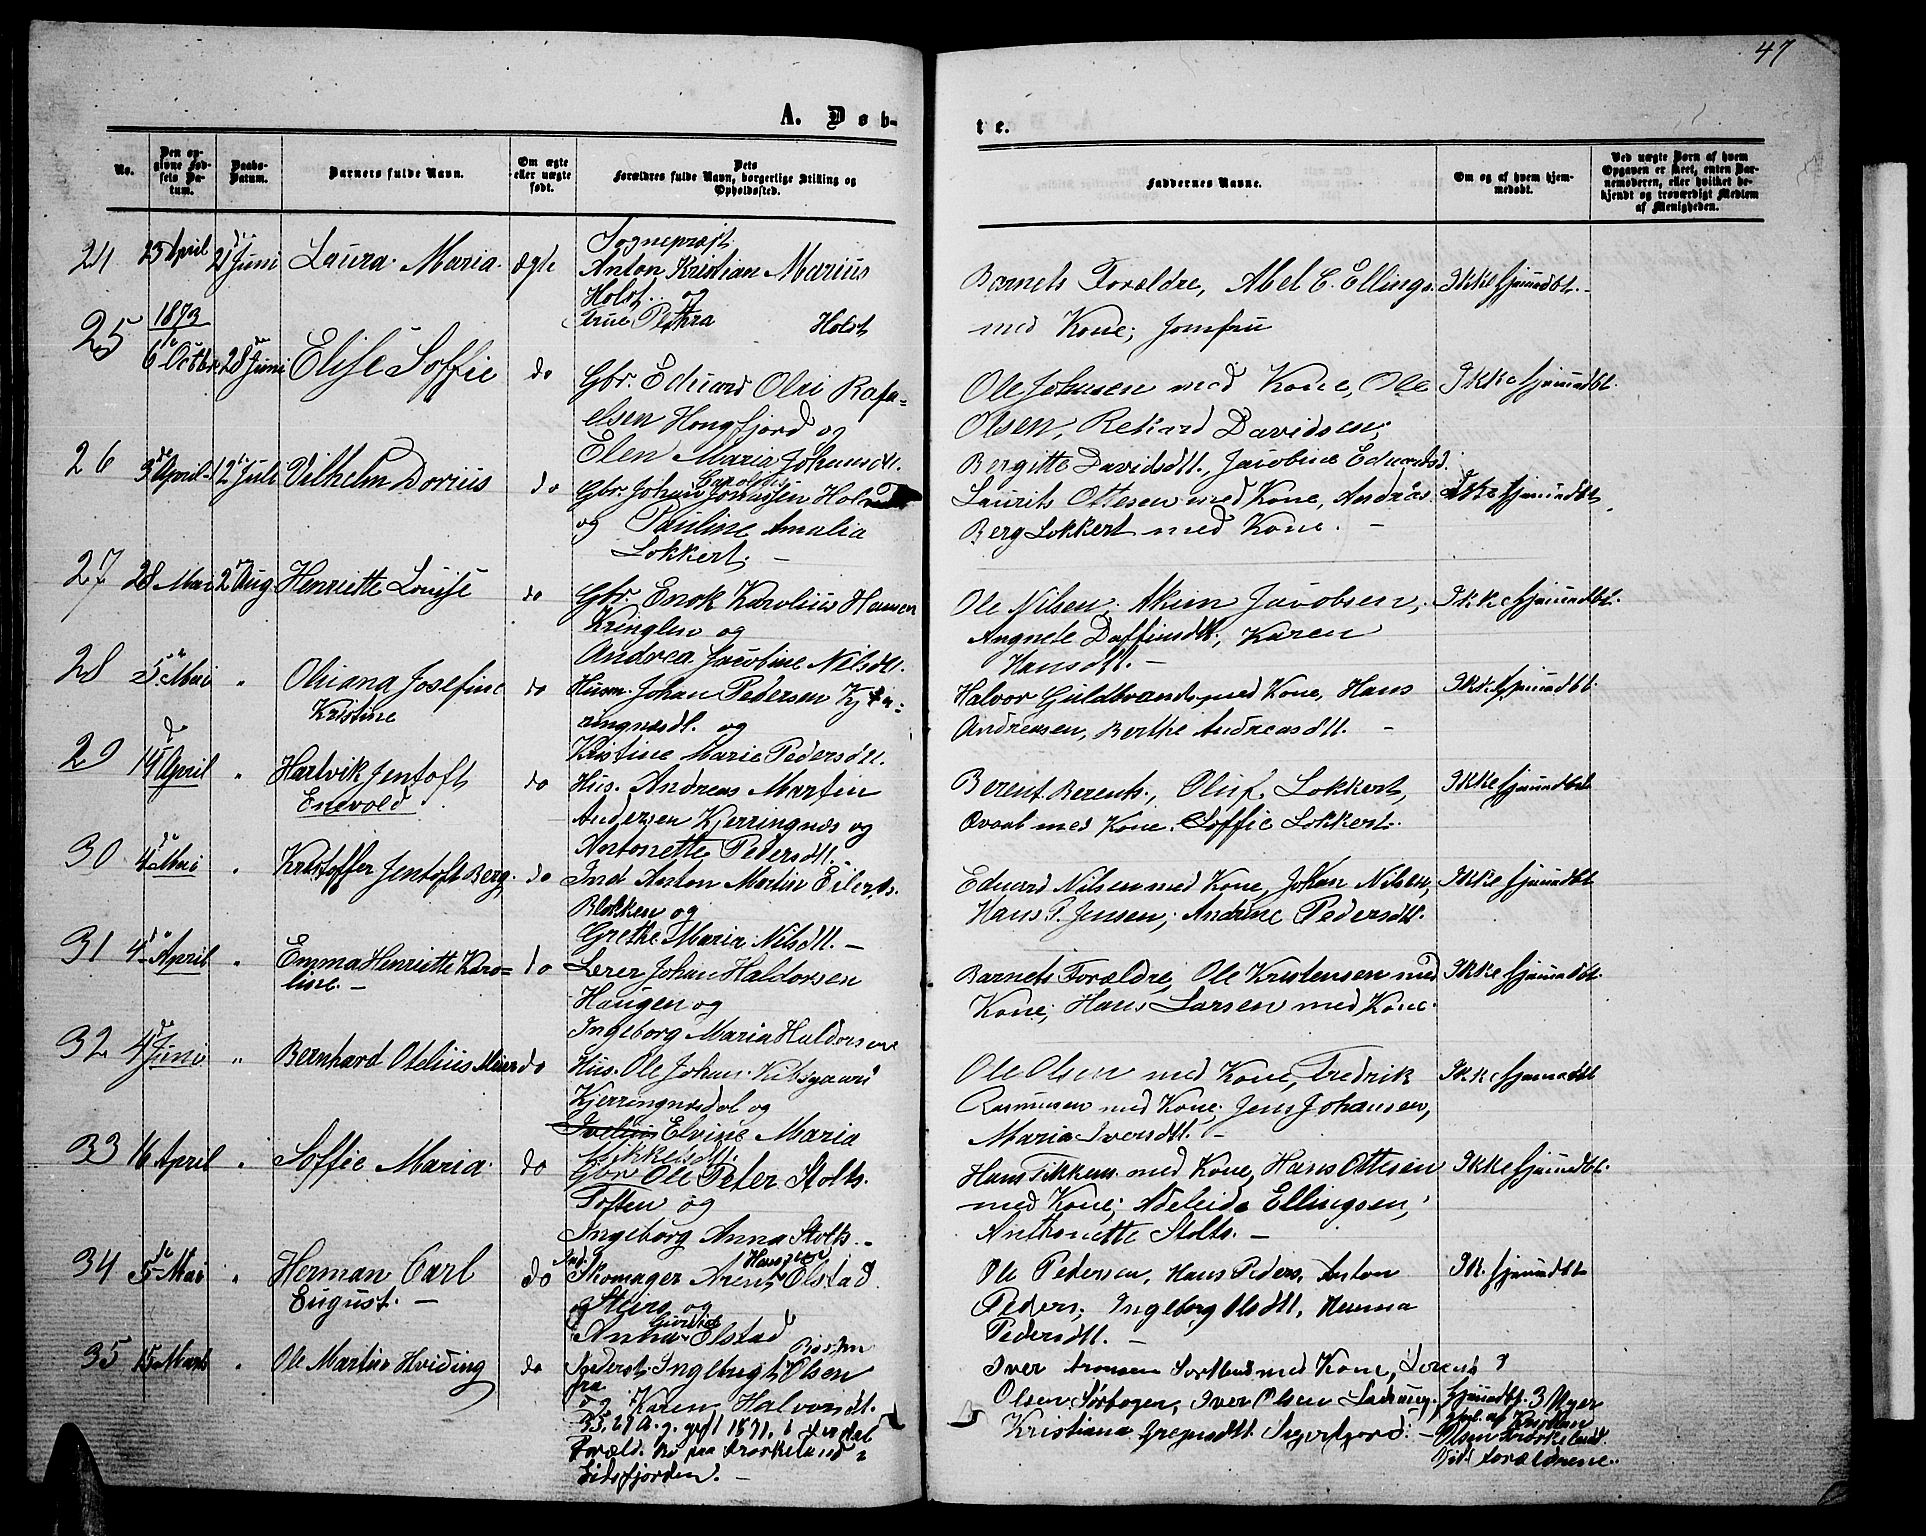 47
A. Døb-
te.
No.
Den op-
givne Fød-
sels Da-
tum.
Daabs-
Datum.
Barnets fulde Navn.
Om ægte
eller uægte
født.
Dets
Forældres fulde Navn, borgerlige Stilling og
Opholdssted.
Faddernes Navne.
Om og af hvem hjem-
medøbt.
Ved uægte Børn af hvem
Opgaven er skeet, enten Bar-
nemoderen, eller hvilket be-
kjendt og troværdigt Medlem
af Menigheden.
24 23 April 21 Juni Laura Maria ægte
Sogneprest
Anton Kristian Marius
Holst og
Frue Pethra Holst
Barnets Forældre, Abel C. Ellings.
med Kone, Jomfru
Ikke hjemmedbt.
25 1873
6 Octbr 28 Juni Elise Soffie do
Gbr. Eduard Olai Rafa-
elsen Hongfjord og
Elen Maria Johansdtt.
Ole Johnsen med Kone, Ole
Olsen, Rekard Davidsen,
Bergitte Davidsdtt., Jacobine Eduardsd.
Ikke hjemmedbt.
26 3 April 12 Juli Vilhelm Dorius do
Gbr. Johan Jonassen
og Pauline Amalia
Lokkert. –
Laurits Ottesen med Kone, Andreas
Berg Lokkert med Kone. –
Ikke hjemmedbt
27 28 Mai 2 Aug. Henriette Louise do
Gbr. Enok Karolius Hansen
Kringlen og
Andrea Jacobine Nilsdtt.
Ole Nilsen, Akim Jacobsen,
Angnete Daffinsdtt., Karen
Hansdtt. –
Ikke hjemmedbt.
28 25 Mai " Oliana Josefine do
Kristine
Husm. Johan Pedersen Kje-
ringnæsdl. og
Kristine Marie Pedersdtt.
Halvor Guldbrands. med Kone, Hans
Andreasen, Berthe Andreasdtt. –
Ikke hjemmedbt.
29 14 April " Hartvik Jentoft do
Enevold
Hus. Andreas Martin
Andersen Kjerringnæs og
Antonette Pedersdtt.
Berent Berents., Oluf Lokkert,
Qvaal med Kone, Soffie Lokkert.
Ikke hjemmedbt
30 4 Mai " Kristoffer Jentoft Berg do
Ind. Anton Martin Eilerts.
Blokken og
Grethe Maria Nilsdtt. –
Eduard Nilsen med Kone, Johan Nilsen,
Hans P. Jensen, Andrine Pedersdtt.
Ikke hjemmedbt
31 4 April " Emma Henriette Karo- do
line. –
Lerer Johan Haldorsen
Haugen og
Ingeborg Maria Haldorsen
Barnets Forældre, Ole Kristensen med
Kone, Hans Larsen med Kone.
Ikke hjemmedbt.
32 4 Juni " Bernhard Otelius Meier do
Hus. Ole Johan Kibsgaard
Kjerringnæsdal og
Elvine Maria
Mikkelsdtt.
Ole Olsen med Kone, Fredrik
Rasmusen med Kone, Jens Johansen,
Maria Iversdtt. –
Ikke hjemmedbt
33 16 April " Soffie Maria do
Gbr Ole Peter Stolts.
Toften og
Ingeborg Anna Stolts. –
Hans Fikkens. med Kone, Hans Ottesen
med Kone, Adeleide Ellingsen,
Anthonette Stolts. –
Ikke hjemmedbt.
34 5 Mai " Herman Carl do
Eugust. –
Ind.
Skomager Arent Hansen Elstad
Steiro og
Anna Elstad
Ole Pedersen, Hans Peders, Anton
Peders, Ingeborg Olsdtt., Hemma
Pedersdtt. –
Ik. hjemmedbt
35 15 Marts " Ole Martin Hviding do
Inderst. Ingebrigt Olsen
fra
og Karen Halvorsdt.
33, 29 A. g. gift 1871, 6
Foræld. No paa Froskeland i
Eidsfjorden. –
Iver Aronsen Sortland med Kone, Lorents
Olsen Sørbogen, Iver Olsen
Kristiana Gregusdtt. Sigerfjord. –
hjemmedbt. 3 Uger
gml. af Kristian
Olsen Froskeland.
Vid. Forældrene.